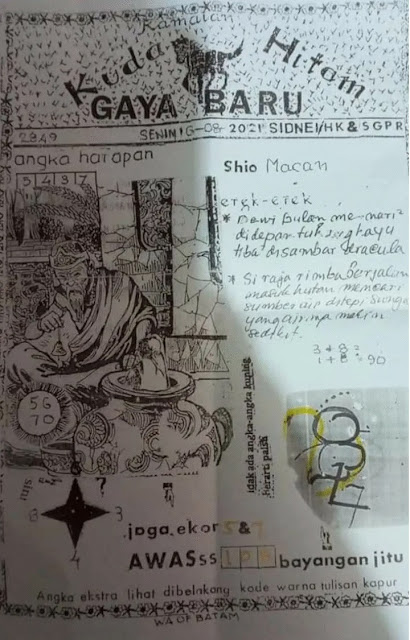 Ramalan
Kuda Hitam
GAYA BARU
2949 SENIN 16-08-2021 SIDNEI/HK & SGPR
angka harapan
5 4 3 7
Shio Macan
erek-erek
* Dewi Bulan menari²
didepan
tiba² disambar dracula
* Si raja rimba berjalan
masuk hutan mencari
sumber air ditepi sungai
yang airnya makin
sedikit.
3 + 8 =
1 + 8 = 90
56
70
tidak ada angka-angka kuning
Berarti palsu
sini
8
7
6
3
4
jaga.ekor 5 & 7
AWASss bayangan jitu
Angka ekstra lihat dibelakang kode warna tulisan kapur
WA OF BATAM